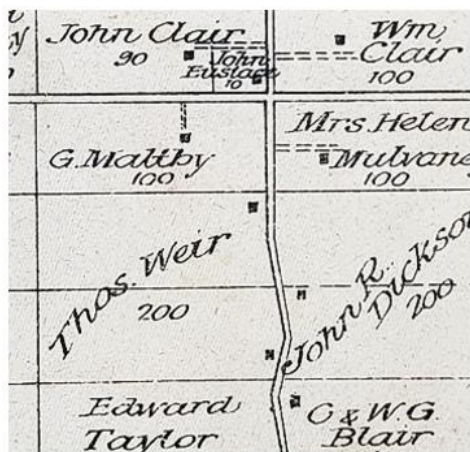 John Clair
90
John
Eustace
10
Wm.
Clair
100
G. Maltby
100
Mrs. Helen
Mulvaney
100
Thos. Weir
200
John R.
Dickson
200
Edward
Taylor
C & W.G.
Blair